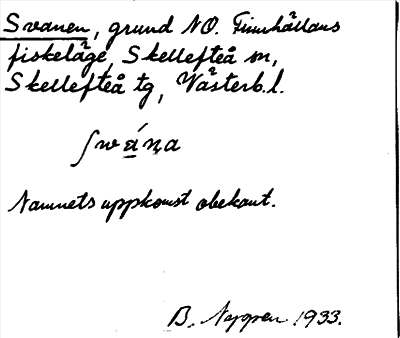 Svanen, grund NO. Finnhällans
fiskeläge, Skellefteå sn,
Skellefteå tg, Västerb. l.
ʃwána
Namnets uppkomst obekant.
B. 1933.